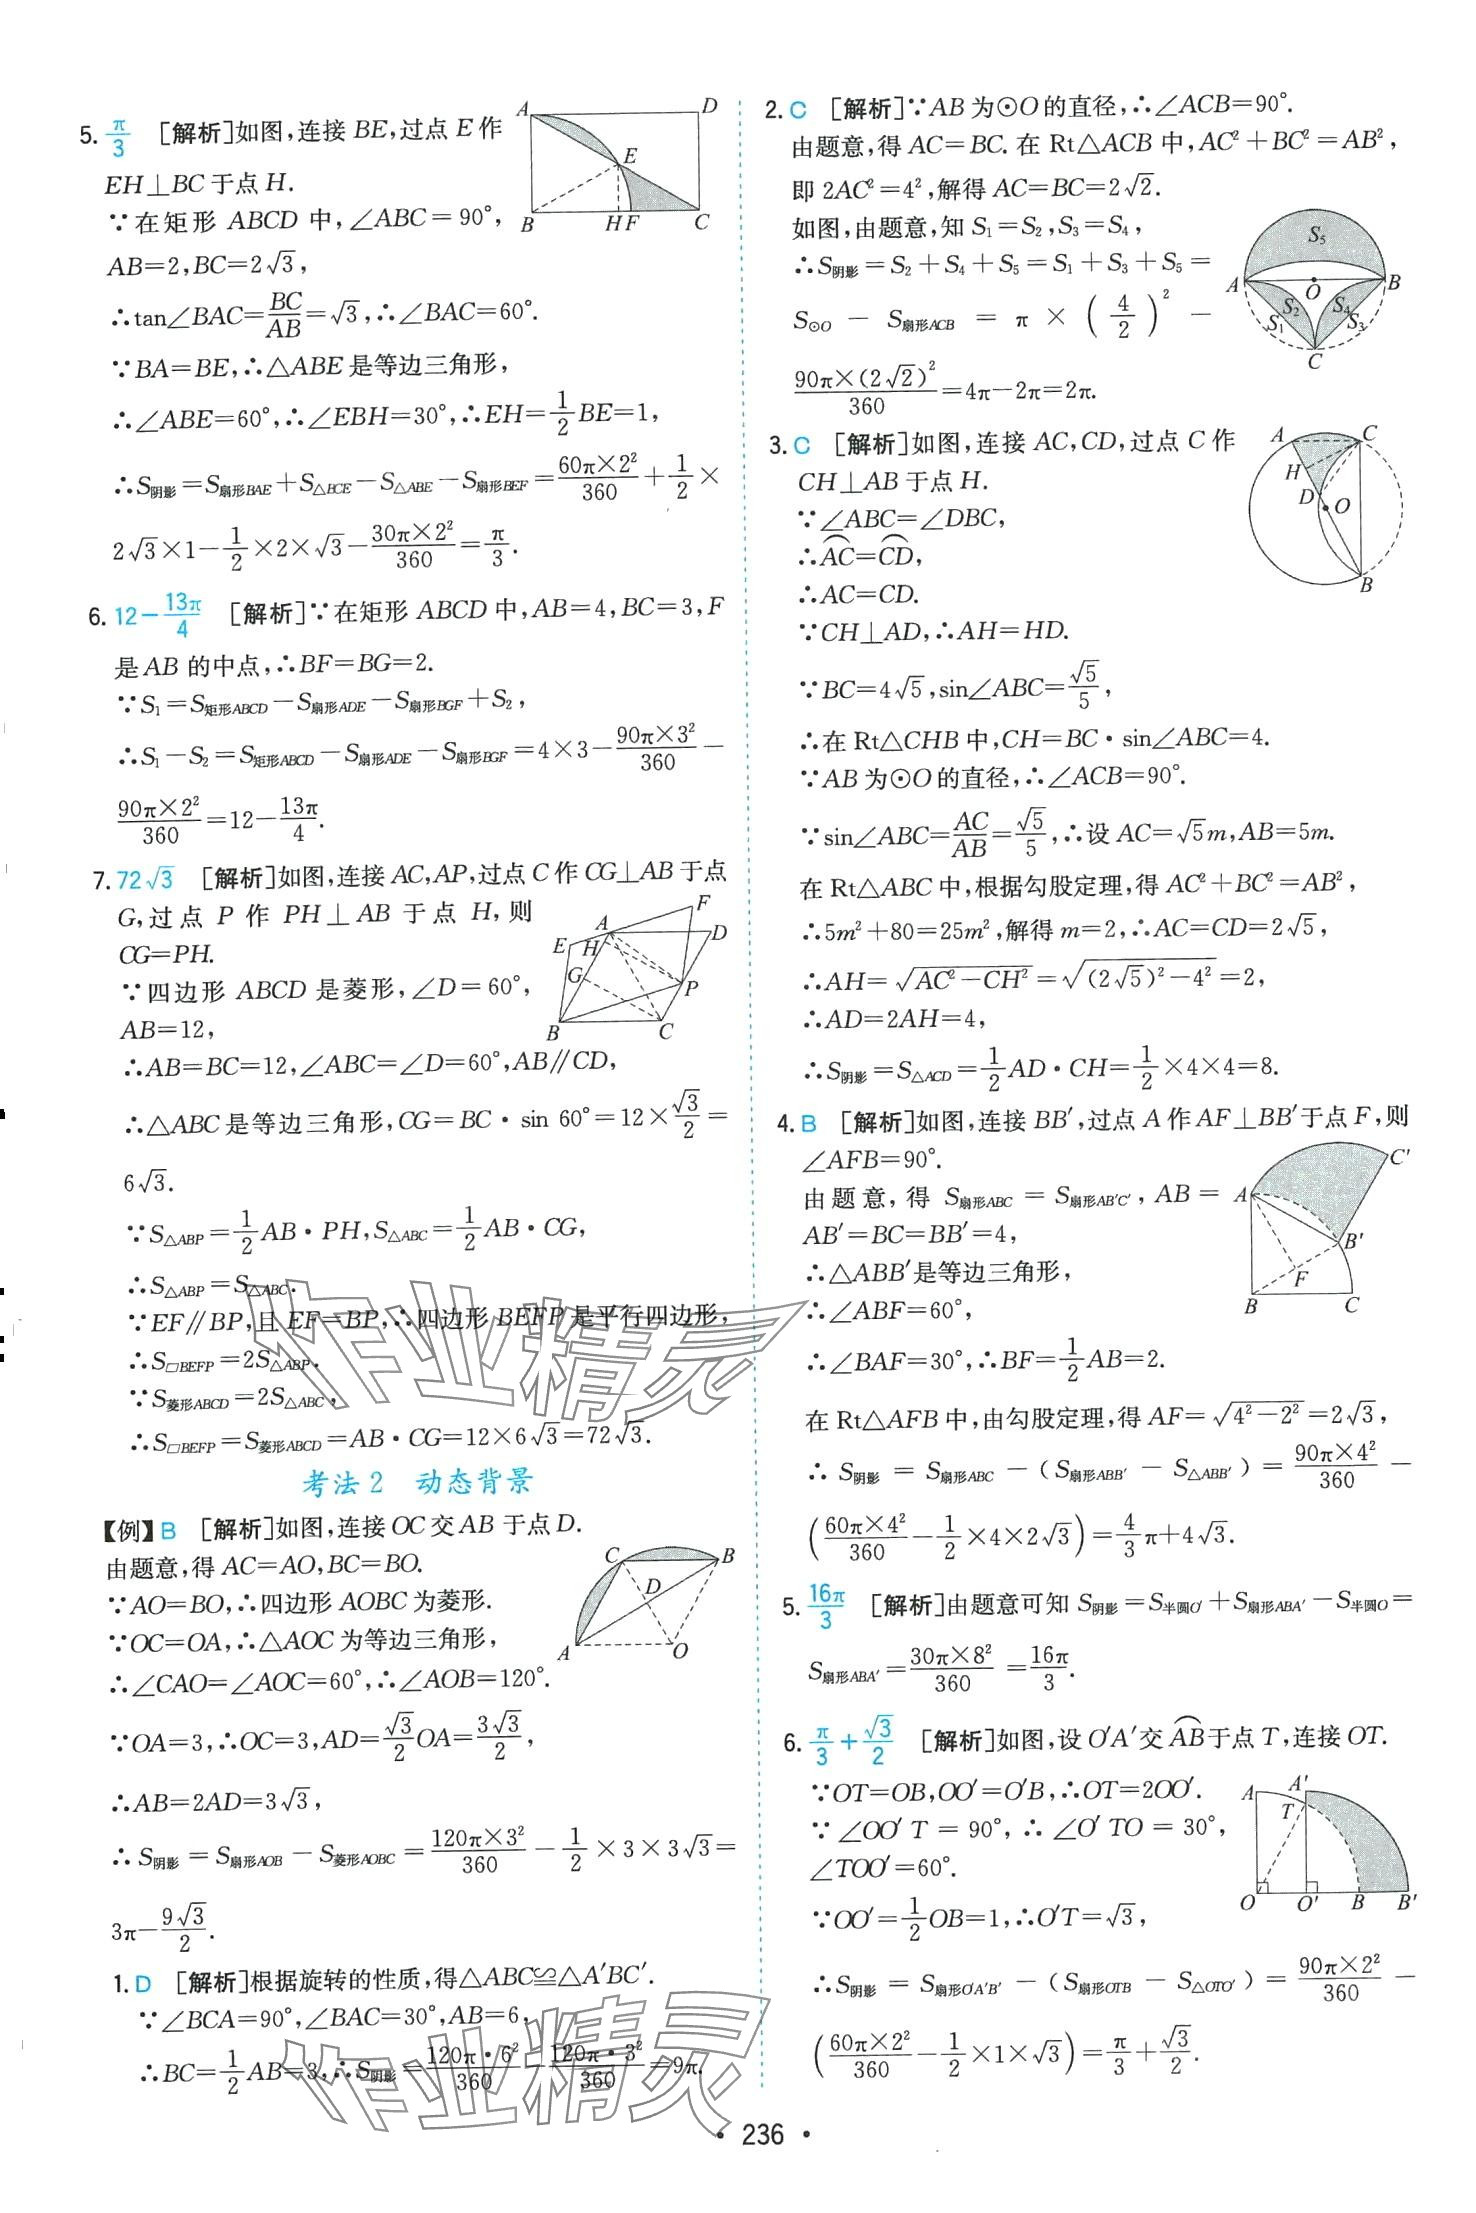 5. π/3 [解析]如图,连接 BE,过点 E 作
EH⊥BC 于点 H.
∵在矩形 ABCD 中,∠ABC=90°,
AB=2,BC=2√3,
∴tan∠BAC=BC/AB=√3,∴∠BAC=60°.
∵BA=BE,∴△ABE 是等边三角形,
∴∠ABE=60°,∴∠EBH=30°,∴EH=1/2BE=1,
∴S阴影=S扇形BAE+S△BCE−S△ABE−S扇形BEF=60π×2²/360+1/2×
2√3×1−1/2×2×√3−30π×2²/360=π/3.
A D E B H F C
6. 12−13π/4 [解析]∵在矩形 ABCD 中,AB=4,BC=3,F
是 AB 的中点,∴BF=BG=2.
∵S₁=S矩形ABCD−S扇形ADE−S扇形BGF+S₂,
∴S₁−S₂=S矩形ABCD−S扇形ADE−S扇形BGF=4×3−90π×3²/360−
90π×2²/360=12−13π/4.
7. 72√3 [解析]如图,连接 AC,AP,过点 C 作 CG⊥AB 于点
G,过点 P 作 PH⊥AB 于点 H,则
CG=PH.
∵四边形 ABCD 是菱形,∠D=60°,
AB=12,
∴AB=BC=12,∠ABC=∠D=60°,AB∥CD,
∴△ABC 是等边三角形,CG=BC·sin 60°=12×√3/2=
6√3.
∵S△ABP=1/2AB·PH,S△ABC=1/2AB·CG,
∴S△ABP=S△ABC.
∵EF∥BP,且 EF=BP,∴四边形 BEFP 是平行四边形,
∴S□BEFP=2S△ABP.
∵S菱形ABCD=2S△ABC,
∴S□BEFP=S菱形ABCD=AB·CG=12×6√3=72√3.
F A D E H G P B C
考法2 动态背景
【例】B [解析]如图,连接 OC 交 AB 于点 D.
由题意,得 AC=AO,BC=BO.
∵AO=BO,∴四边形 AOBC 为菱形.
∵OC=OA,∴△AOC 为等边三角形,
∴∠CAO=∠AOC=60°,∴∠AOB=120°.
∵OA=3,∴OC=3,AD=√3/2OA=3√3/2,
∴AB=2AD=3√3,
∴S阴影=S扇形AOB−S菱形AOBC=120π×3²/360−1/2×3×3√3=
3π−9√3/2.
C B D A O
1. D [解析]根据旋转的性质,得△ABC≌△A′BC′.
∵∠BCA=90°,∠BAC=30°,AB=6,
∴BC=1/2AB=3,∴S阴影=120π·6²/360−120π·3²/360=9π.
2. C [解析]∵AB 为⊙O 的直径,∴∠ACB=90°.
由题意,得 AC=BC.在 Rt△ACB 中,AC²+BC²=AB²,
即 2AC²=4²,解得 AC=BC=2√2.
如图,由题意,知 S₁=S₂,S₃=S₄,
∴S阴影=S₂+S₄+S₅=S₁+S₃+S₅=
S⊙O−S扇形ACB=π×(4/2)²−
90π×(2√2)²/360=4π−2π=2π.
S₅ A O B S₂ S₄ S₁ S₃ C
3. C [解析]如图,连接 AC,CD,过点 C 作
CH⊥AB 于点 H.
∵∠ABC=∠DBC,
∴⌒AC=⌒CD,
∴AC=CD.
∵CH⊥AD,∴AH=HD.
∵BC=4√5,sin∠ABC=√5/5,
∴在 Rt△CHB 中,CH=BC·sin∠ABC=4.
∵AB 为⊙O 的直径,∴∠ACB=90°.
∵sin∠ABC=AC/AB=√5/5,∴设 AC=√5m,AB=5m.
在 Rt△ABC 中,根据勾股定理,得 AC²+BC²=AB²,
∴5m²+80=25m²,解得 m=2,∴AC=CD=2√5,
∴AH=√(AC²−CH²)=√((2√5)²−4²)=2,
∴AD=2AH=4,
∴S阴影=S△ACD=1/2AD·CH=1/2×4×4=8.
A C H D O B
4. B [解析]如图,连接 BB′,过点 A 作 AF⊥BB′于点 F,则
∠AFB=90°.
由题意,得 S扇形ABC=S扇形AB′C′,AB=
AB′=BC=BB′=4,
∴△ABB′是等边三角形,
∴∠ABF=60°,
∴∠BAF=30°,∴BF=1/2AB=2.
在 Rt△AFB 中,由勾股定理,得 AF=√(4²−2²)=2√3,
∴S阴影=S扇形ABC−(S扇形ABB′−S△ABB′)=90π×4²/360−
(60π×4²/360−1/2×4×2√3)=4/3π+4√3.
C′ A B′ F B C
5. 16π/3 [解析]由题意可知 S阴影=S半圆O′+S扇形ABA′−S半圆O=
S扇形ABA′=30π×8²/360=16π/3.
6. π/3+√3/2 [解析]如图,设 O′A′交⌒AB于点 T,连接 OT.
∵OT=OB,OO′=O′B,∴OT=2OO′.
∵∠OO′T=90°,∴∠O′TO=30°,
∠TOO′=60°.
∵OO′=1/2OB=1,∴O′T=√3,
∴S阴影=S扇形O′A′B′−(S扇形OTB−S△OTO′)=90π×2²/360−
(60π×2²/360−1/2×1×√3)=π/3+√3/2.
A A′ T O O′ B B′
作业精灵
作业精灵
·236·